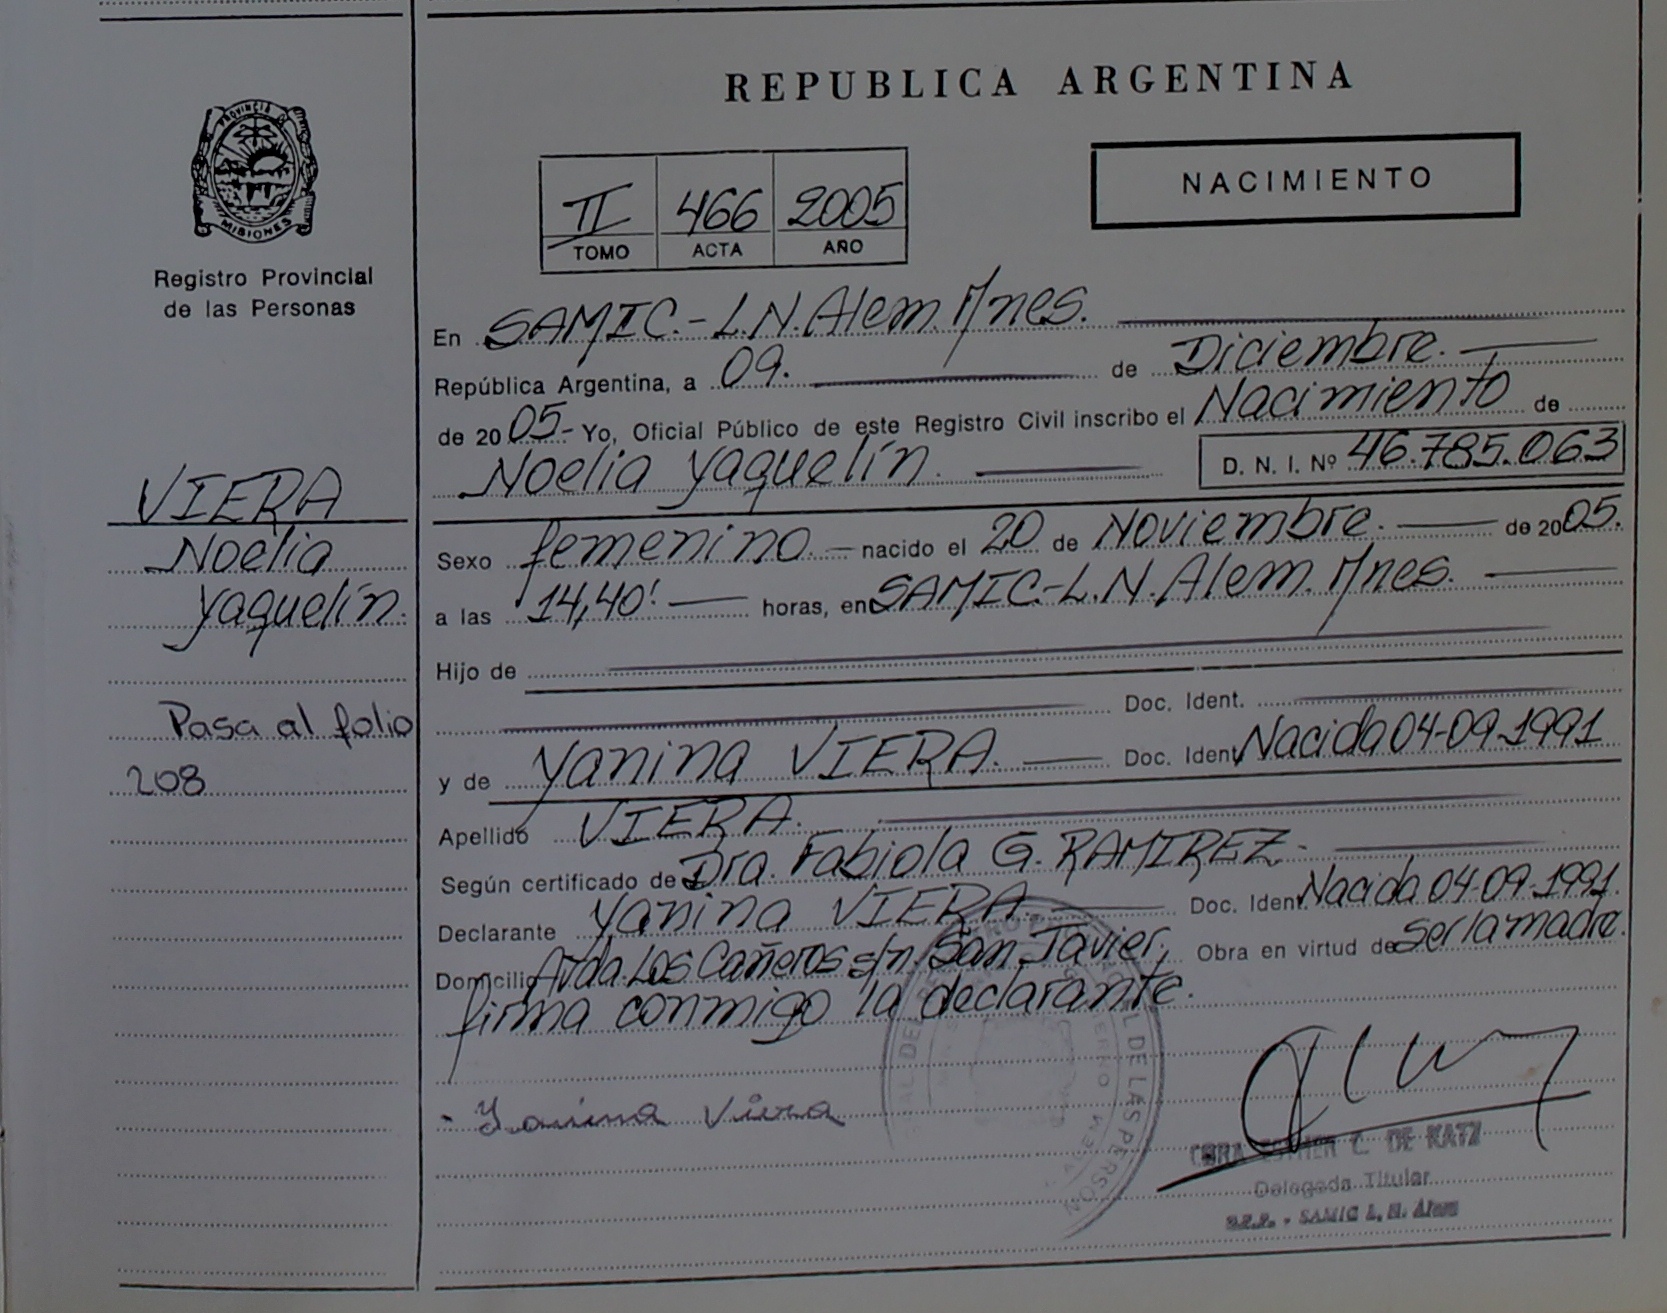 REPUBLICA ARGENTINA
PROVINCIA DE
MISIONES
Registro Provincial
de las Personas
NACIMIENTO
II 466 2005
TOMO ACTA AÑO
En SAMIC.-L.N.Alem.Mnes.
República Argentina, a 09. de Diciembre.
de 2005- Yo, Oficial Público de este Registro Civil inscribo el Nacimiento de
Noelia Yaquelín. D. N. I. Nº 46.785.063
VIERA
Noelia
Yaquelín.
Sexo femenino.- nacido el 20 de Noviembre. de 2005.
a las 14,40' horas, en SAMIC.-L.N.Alem.Mnes.
Hijo de
Doc. Ident.
Pasa al folio
208
y de Yanina VIERA. Doc. Ident. Nacida 04-09-1991
Apellido VIERA.
Según certificado de Dra. Fabiola G. RAMIREZ-
Declarante Yanina VIERA. Doc. Ident. Nacida 04-09-1991.
Domicilio Avda. Los Cañeros s/n. San Javier, Obra en virtud de Ser la madre.
firma conmigo la declarante.
Yanina Viera
ESTHER C. DE KATZ
Delegada Titular
SAMIC L. N. Alem